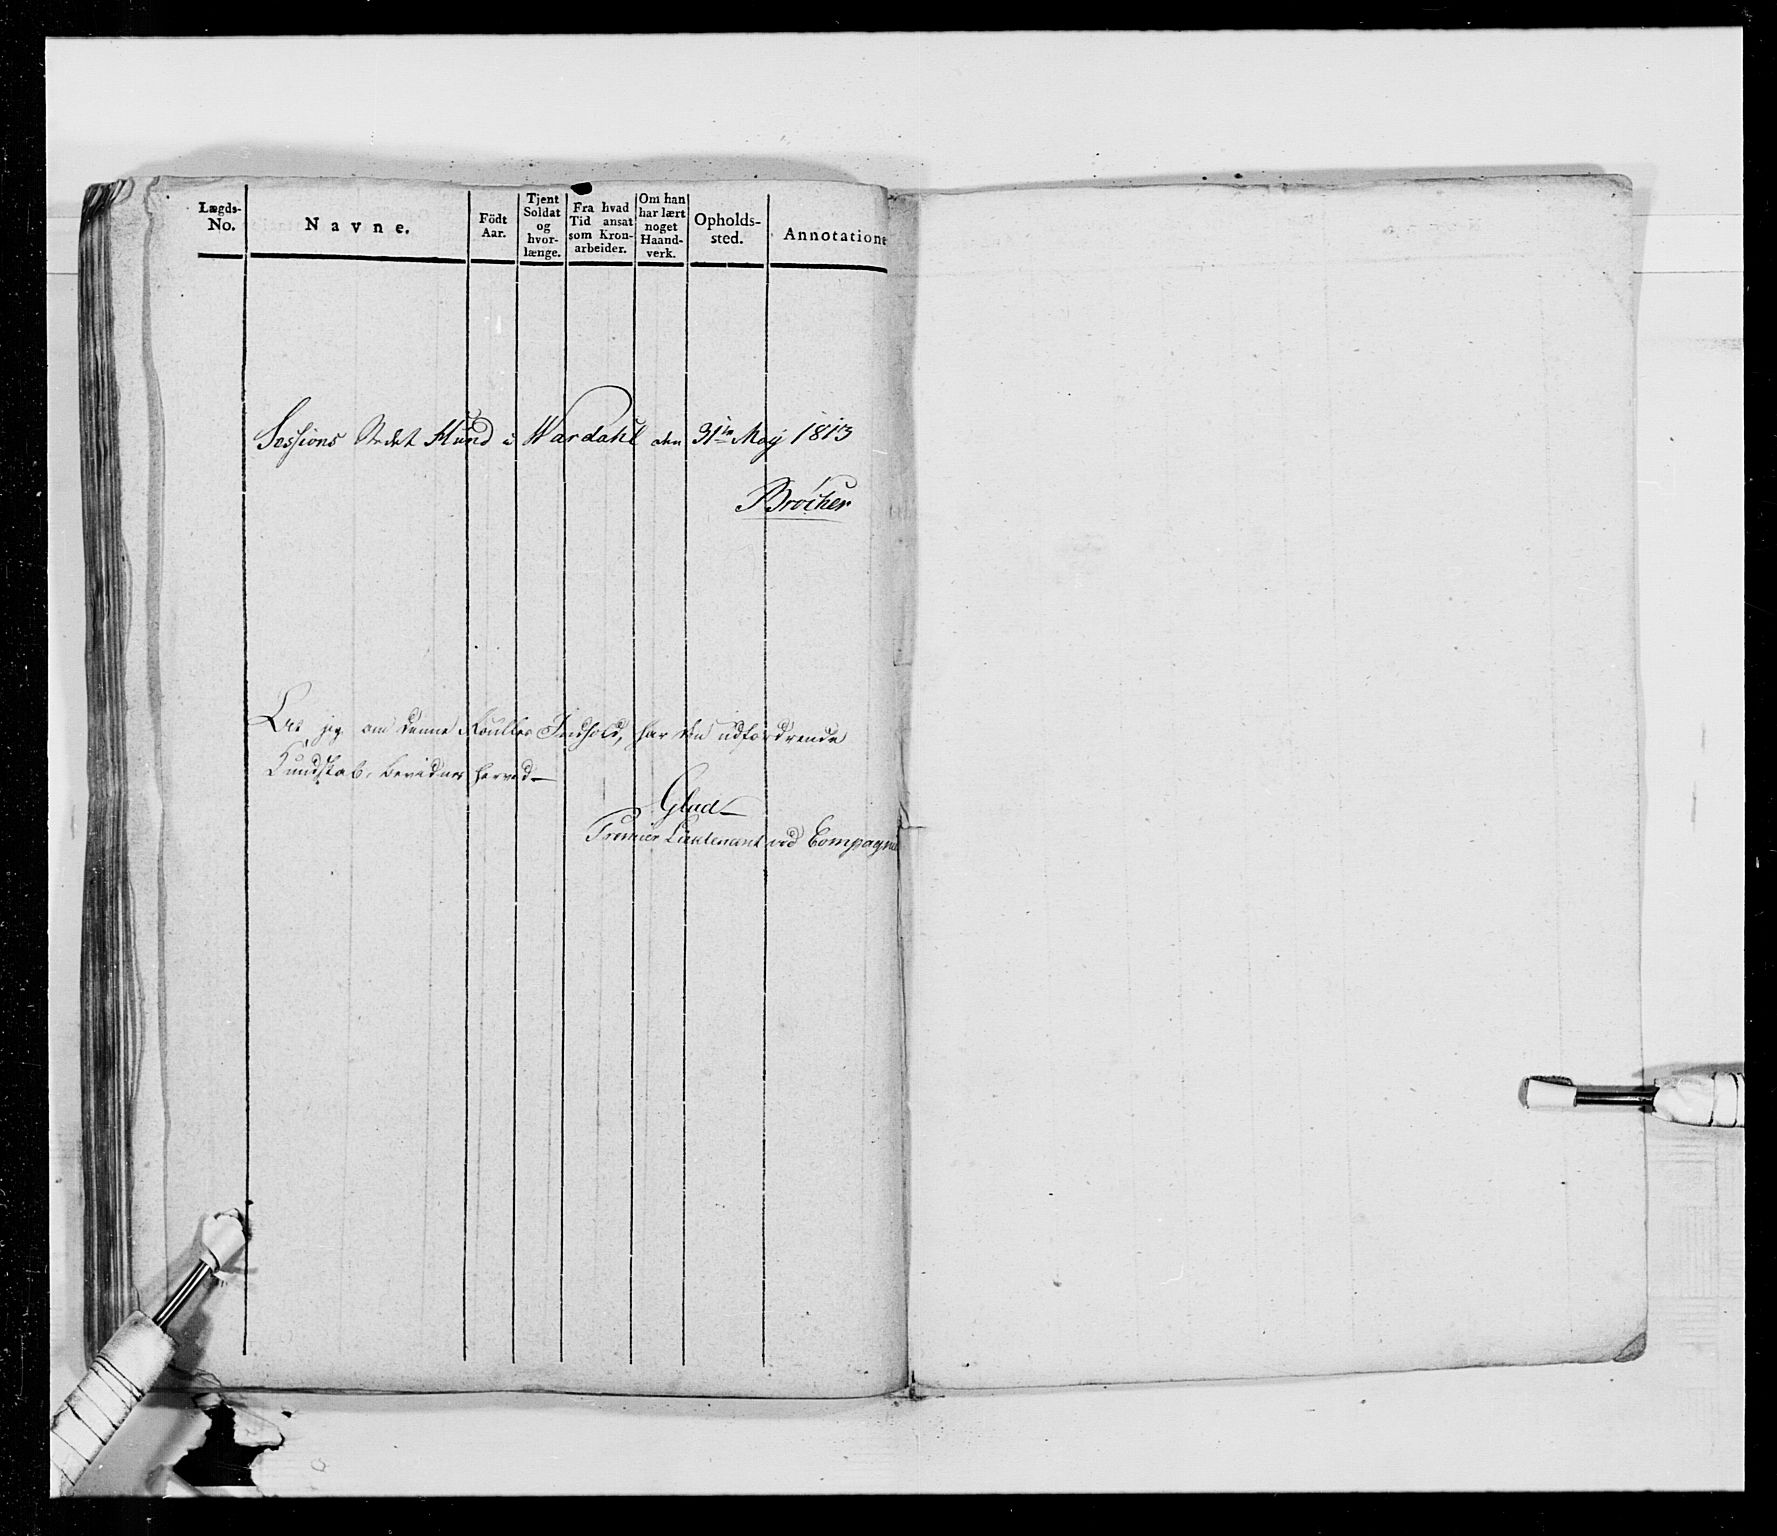 Lægds-No.
Navne.
Födt Aar.
Tjent Soldat og hvor-længe.
Fra hvad Tid ansat som Kron-arbeider.
Om han har lært noget Haand-verk.
Opholds-sted.
Annotatione
Sessions Stedet Mund i Wardahl den 31te May 1813
Bröcher
At jeg om denne Roulles Indhold, har den udfordrende
Kundskab, bevidnes herved
Glad
Premier Lieutenant ved Compagnie